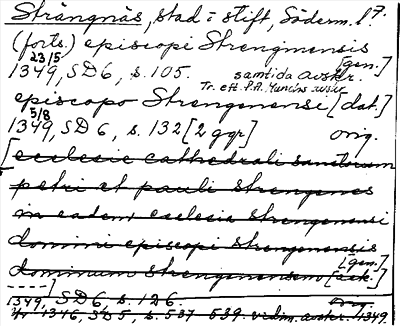 Strängnäs, stad i stift, Söderm. l. 7.
(forts.) episcopi Strenginensis
23/5 [gen.]
1349, SD 6, s. 105. samtida avskr.
Tr. eft. P.A. Munchs avskr
episcopo Strengenensi [dat.]
5/8
1349, SD 6, s. 132 [2 ggr] orig.
[ecclesie cathedrali sanctorum
petri et pauli strengenes
in eadem ecclesia strengenensi
domini episcopi strengenensis
[gen.]
dominum strengenensem [ack.]
----]
1349, SD 6, s. 126. orig.
1346, SD 5, s. 537-539. vidim. avskr. 1349.